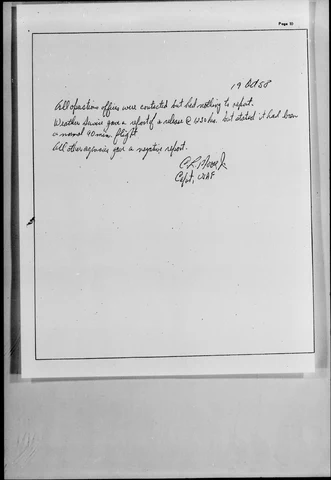 Page
19 Oct 58
All operations offices were contacted but had nothing to report.
Weather Service gave a report of a release @ 1230 hrs. but stated it had been
a normal 90 min. flight
All other agencies gave a negative report.
C L
Capt, USAF